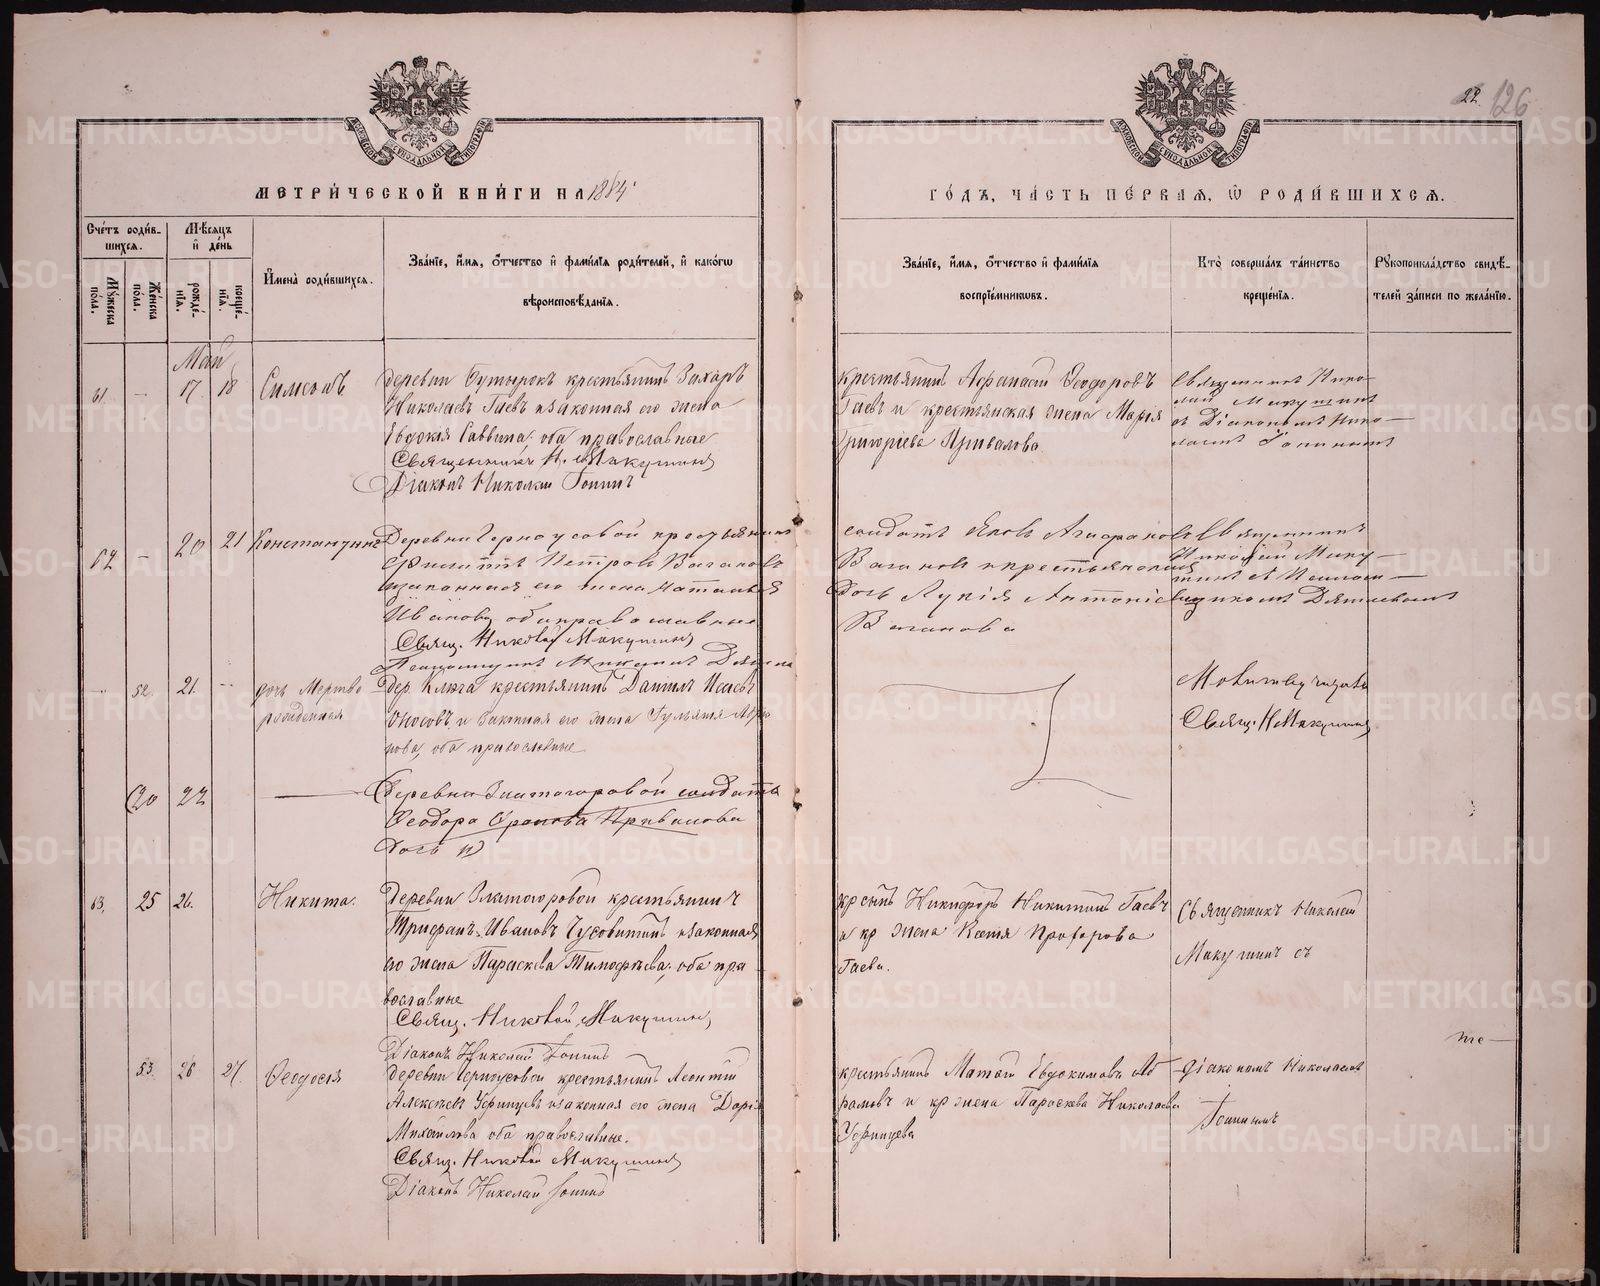 22. 126
МЕТРИ́ЧЕСКОЙ КНИ́ГИ НА 1884
ГО́ДЪ, ЧА́СТЬ ПЕ́РВАЯ, Ѽ РОДИ́ВШИХСѦ.
Сче́тъ роди́вшихсѧ.
Мѣ́сѧцъ и҆ де́нь
Мꙋ́жеска по́ла.
Же́нска по́ла.
рожде́нїѧ.
креще́нїѧ.
И҆мена̀ роди́вшихсѧ.
Зва́нїе, и҆́мѧ, ѻ҆́тчество и҆ фами́лїѧ роди́телей, и҆ како́гѡ
вѣроисповѣ́данїѧ.
Зва́нїе, и҆́мѧ, ѻ҆́тчество и҆ фами́лїѧ
воспрїе́мникѡвъ.
Кто̀ соверша́лъ та́инство
креще́нїѧ.
Рꙋкоприкла́дство свидѣ́телей за́писи по жела́нїю.
Май
61 – 17. 18 Симеонъ
деревни Бутырокъ крестьянинъ Захаръ
Николаевъ Гаевъ и законная его жена
Евдокия Саввина; оба православные
Священникъ Н. Макушинъ
Діаконъ Николай Тонинъ
крестьянинъ Афанасій Ѳеодоровъ
Гаевъ и крестьянская жена Марія
Григоріева Привалова
Священникъ Николай Макушинъ
съ Діакономъ Николаемъ
62 – 20 21 Константинъ
Деревни Черноусовой крестьянинъ
Филиппъ Петровъ Вагановъ
и законная его жена Наталья
Иванова оба православные
Свящ. Николай Макушинъ
солдатъ Яковъ
Вагановъ и крестьянская
дочь Лукія Антоніева
Ваганова
Священникъ
Николай Макушинъ
– 52. 21. – дочь Мертворожденная
дер. Ключа крестьянинъ Даніилъ Исаевъ
Оносовъ и законная его жена
оба православные
Молитву читалъ
Свящ. Н Макушинъ
(20 22
(Деревни Златогоровой солдата
Ѳеодора Привалова
дочь
63, 25 26. Никита.
деревни Златогоровой крестьянинъ
Трифанъ Ивановъ Чусовитинъ и законная
его жена Параскева Тимофѣева; оба православные
Свящ. Николай Макушинъ
Діаконъ Николай Тонинъ
кр сынъ Никифоръ Никитинъ Гаевъ
и кр жена Ксенія Прохорова
Гаева.
Священникъ Николай
Макушинъ съ
53. 26 27. Ѳеодосія
деревни Черноусовой крестьянинъ Леонтій
Алексѣевъ Уфинцевъ и законная его жена Дарья
Михайлова оба православные.
Свящ. Николай Макушинъ
Діаконъ Николай Тонинъ
крестьянинъ Матвѣй Евдокимовъ Абрамовъ
и кр жена Параскева Николаева
Уфинцева
діакономъ Николаемъ
Тонинымъ